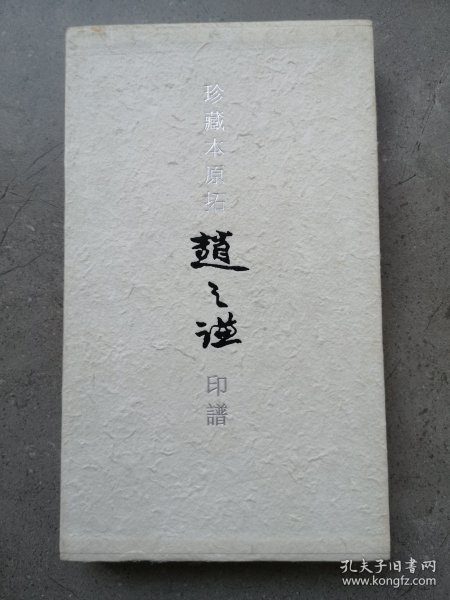 珍藏本原拓
趙之謙
印譜
孔夫子旧书网
www.kongfz.com